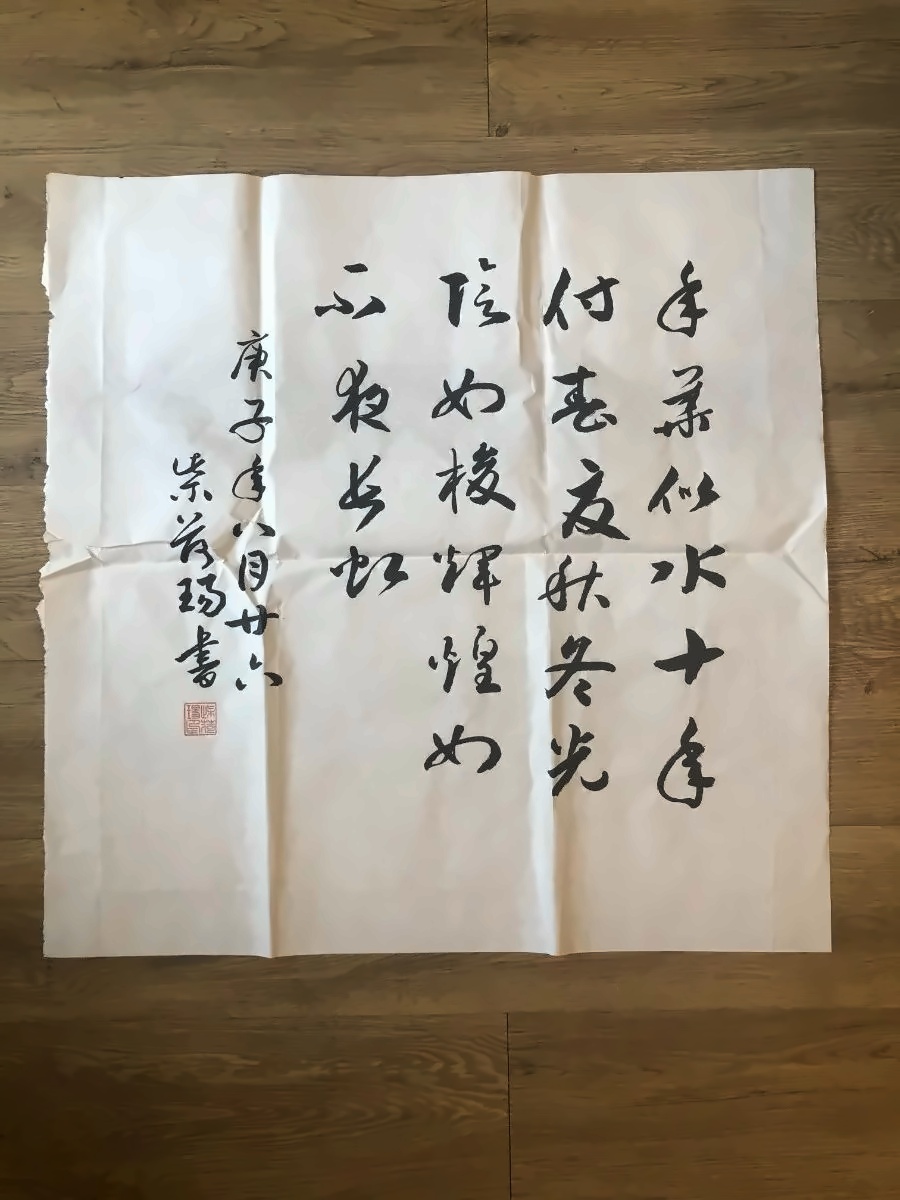 年華似水十年
付春夏秋冬光
陰如梭輝煌如
不夜长虹
庚子年八月廿六
柴書